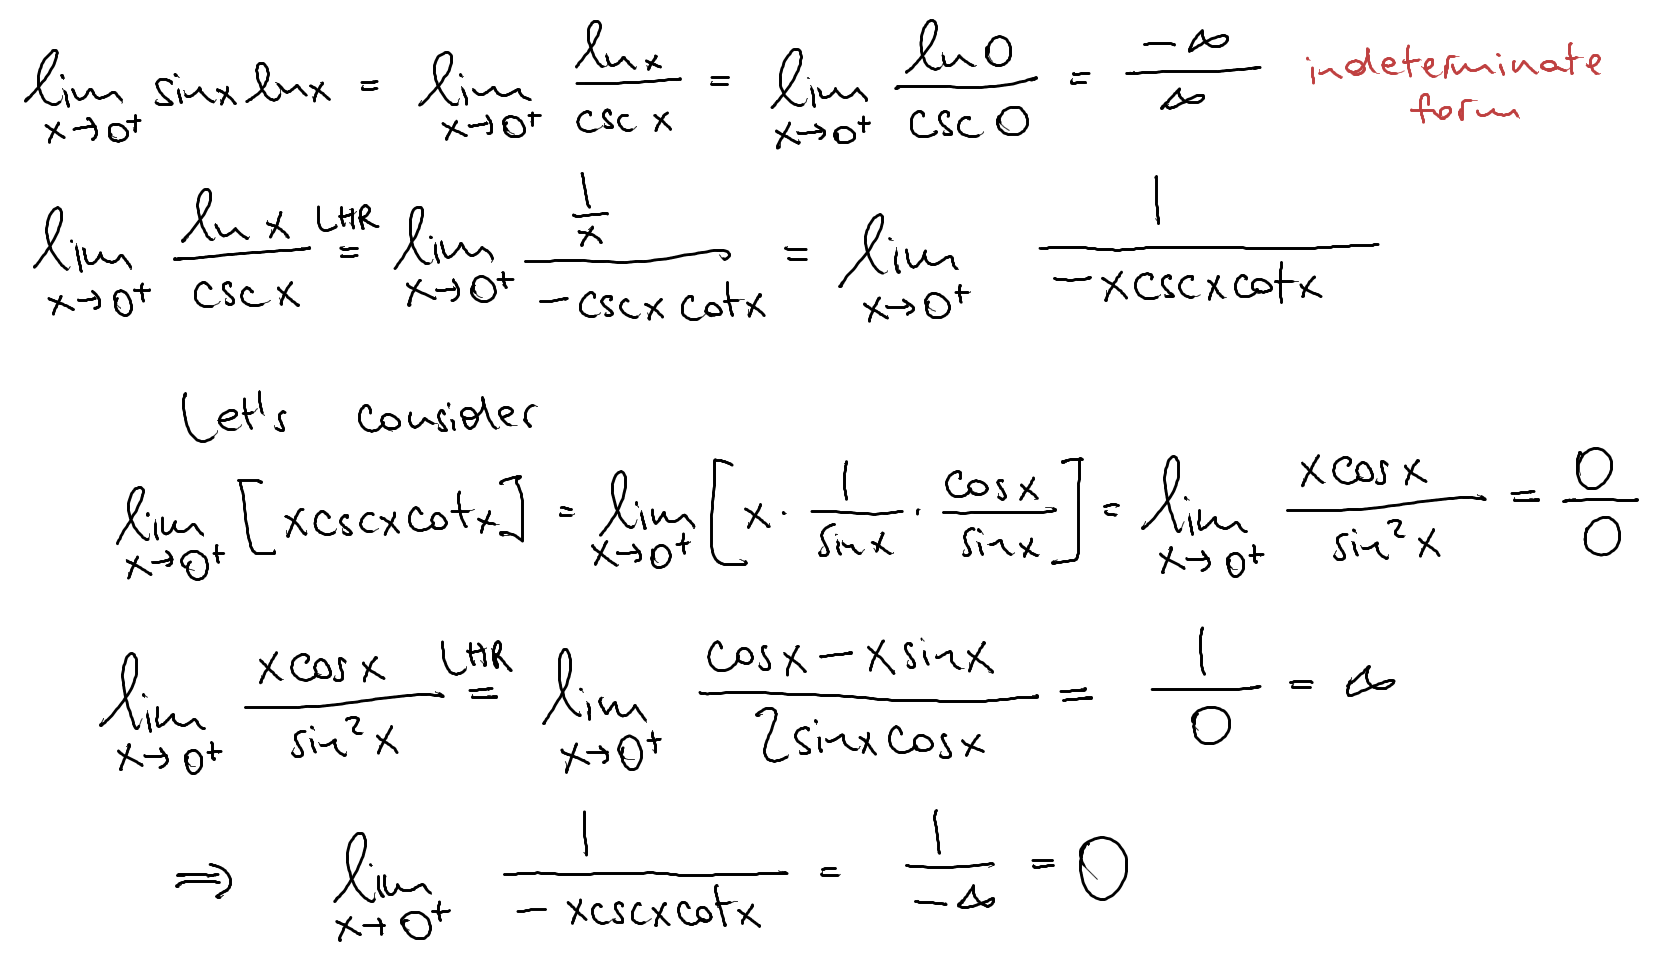 lim_{x→0⁺} sinx lnx = lim_{x→0⁺} \frac{ln x}{csc x} = lim_{x→0⁺} \frac{ln 0}{csc 0} = \frac{-∞}{∞} indeterminate form
lim_{x→0⁺} \frac{ln x}{csc x} \overset{LHR}{=} lim_{x→0⁺} \frac{\frac{1}{x}}{-cscx cotx} = lim_{x→0⁺} \frac{1}{-xcscxcotx}
Let's consider
lim_{x→0⁺} [xcscxcotx] = lim_{x→0⁺} [x · \frac{1}{sinx} · \frac{cosx}{sinx}] = lim_{x→0⁺} \frac{xcosx}{sin²x} = \frac{0}{0}
lim_{x→0⁺} \frac{xcosx}{sin²x} \overset{LHR}{=} lim_{x→0⁺} \frac{cosx - xsinx}{2sinxcosx} = \frac{1}{0} = ∞
⇒ lim_{x→0⁺} \frac{1}{-xcscxcotx} = \frac{1}{-∞} = 0